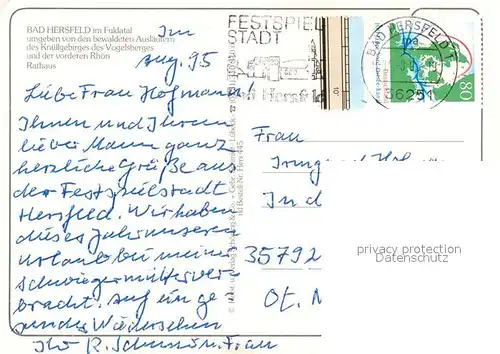 BAD HERSFELD im Fuldatal
umgeben von den bewaldeten Ausläufern
des Knüllgebirges des Vogelsberges
und der vorderen Rhön
Rathaus
Im
Aug. 95
Liebe Frau Hofmann
Ihnen und Ihrem
lieber Mann ganz
herzliche Grüße aus
der Festspielstadt
Hersfeld. Wir haben
dieses Jahr unseren
Urlaub bei meiner
Schwiegermutter ver
bracht. Auf ein ge
sundes Wiedersehen
Ihr R. und Frau
FESTSPIEL
STADT
BAD HERSFELD 1
36251
80
Frau
Irmgard
In d
35792
Ot.
privacy protection
Datenschutz